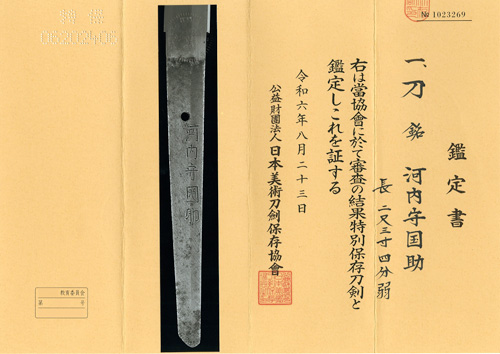 № 1023269
鑑定書
一、刀 銘 河内守国助
長 二尺三寸四分弱
右は當協會に於て審査の結果特別保存刀剣と
鑑定しこれを証する
令和六年八月二十三日
公益財團法人 日本美術刀剣保存協會
河内守国助
教育委員会
第 号